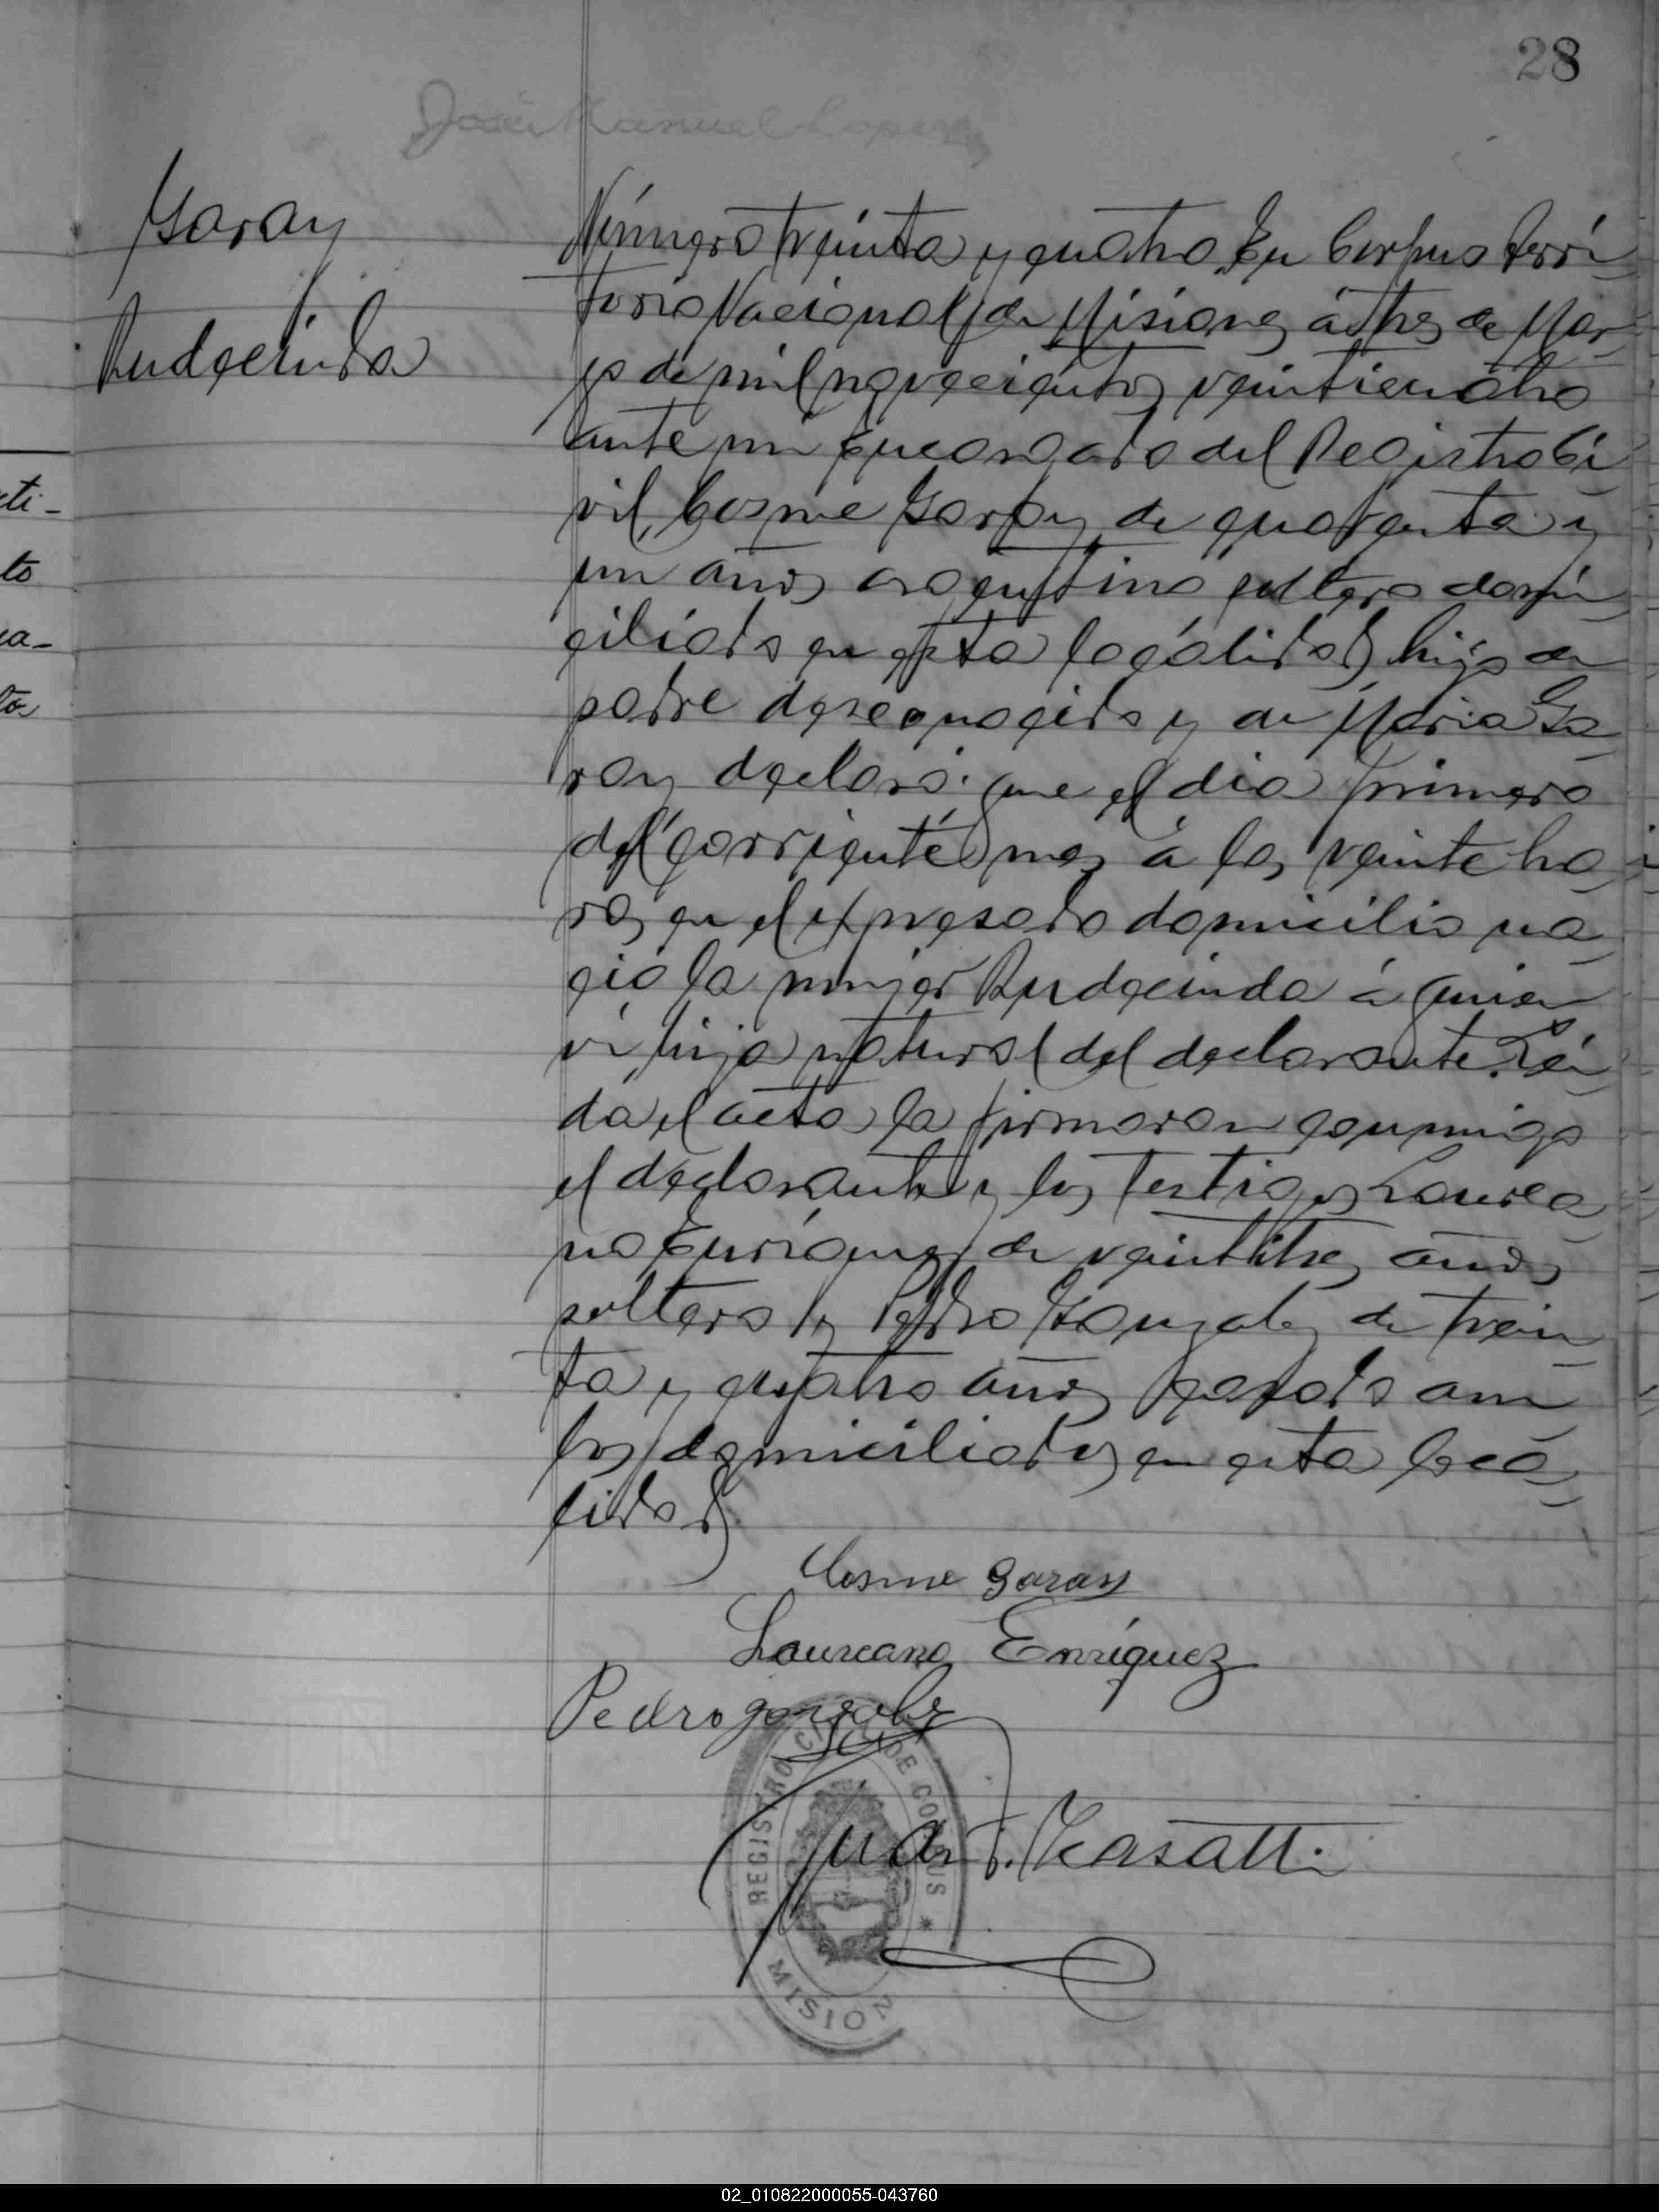 28
José Manuel Lopez
Garay
Rudecinda
ti-
to
a-
to
Número treinta y cuatro. En Corpus Terri-
torio Nacional de Misiones á tres de Mar-
zo de mil novecientos veinticuatro
ante mi Encargado del Registro Ci-
vil, Cosme Garay de cuarenta y
un años argentino soltero domi-
ciliado en esta localidad hijo de
padre desconocido y de Maria Ga-
ray declaró: que el dia primero
del corriente mes á las veinte ho-
ras en el expresado domicilio na-
ció la mujer Rudecinda á quien
vi hija natural del declarante. Leí-
da el acta la firmaron conmigo
el declarante y los testigos Laurea-
no Enriquez de veintitres años
soltero y Pedro Gonzalez de trein-
ta y cuatro años casado am-
bos domiciliados en esta loca-
lidad.
Cosme Garay
Laureano Enríquez
Pedro gonzalez
REGISTRO CIVIL DE CORPUS
MISION
Casatti
02_010822000055-043760